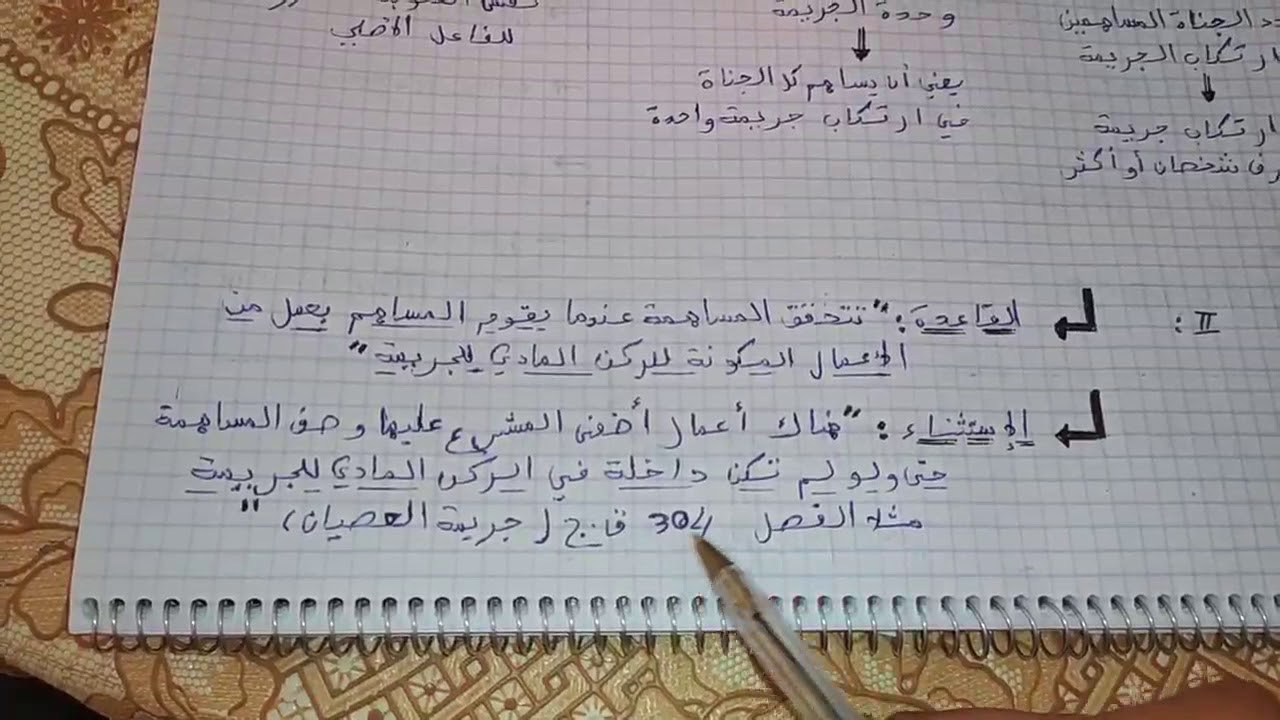 الجناة المساهمين
ارتكاب الجريمة
ارتكاب جريمة
شخصان أو أكثر
وحدة الجريمة
يعني أن يساهم كل الجناة
في ارتكاب جريمة واحدة
للفاعل الأصلي
II :
القاعدة : "تتحقق المساهمة عندما يقوم المساهم بعمل من
الأعمال المكونة للركن المادي للجريمة"
الإستثناء : "هناك أعمال أضفى المشرع عليها وصف المساهمة
حتى ولو لم تكن داخلة في الركن المادي للجريمة
مثلا الفصل 304 ق.ج ( جريمة العصيان )"